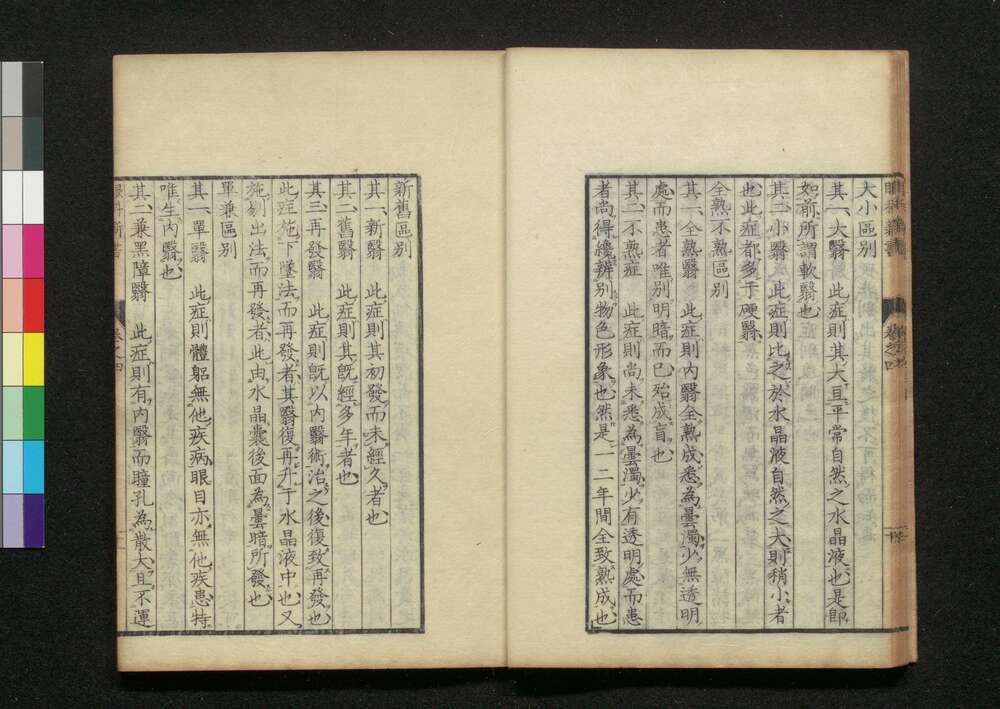 大小區別
其一、大翳　此症則其大且平常自然之水晶液也是即
如前所謂軟翳也
其二、小翳　此症則比之於水晶液自然之大則稍小者
也此症都多于硬翳
全熟不熟區別
其一、全熟翳　此症則内翳全熟成悉為曇濁少無透明
處而患者唯別明暗而已殆成盲也
其二、不熟症　此症則尚未悉為曇濁少有透明處而患
者尚得纔辨別物色形象也然是一二年間全致熟成也
卷之四
新舊區別
其一、新翳　此症則其初發而未經久者也
其二、舊翳　此症則其既經多年者也
其三、再發翳　此症則既以内翳術治之後復致再發也
此症施下墜法而再發者其翳復再升于水晶液中也又
施剔出法而再發者此由水晶囊後面為曇暗所發也
單兼區別
其一、單翳　此症則體軀無他疾病眼目亦無他疾患特
唯生内翳也
其二、兼黑障翳　此症則有内翳而瞳孔為散大且不運